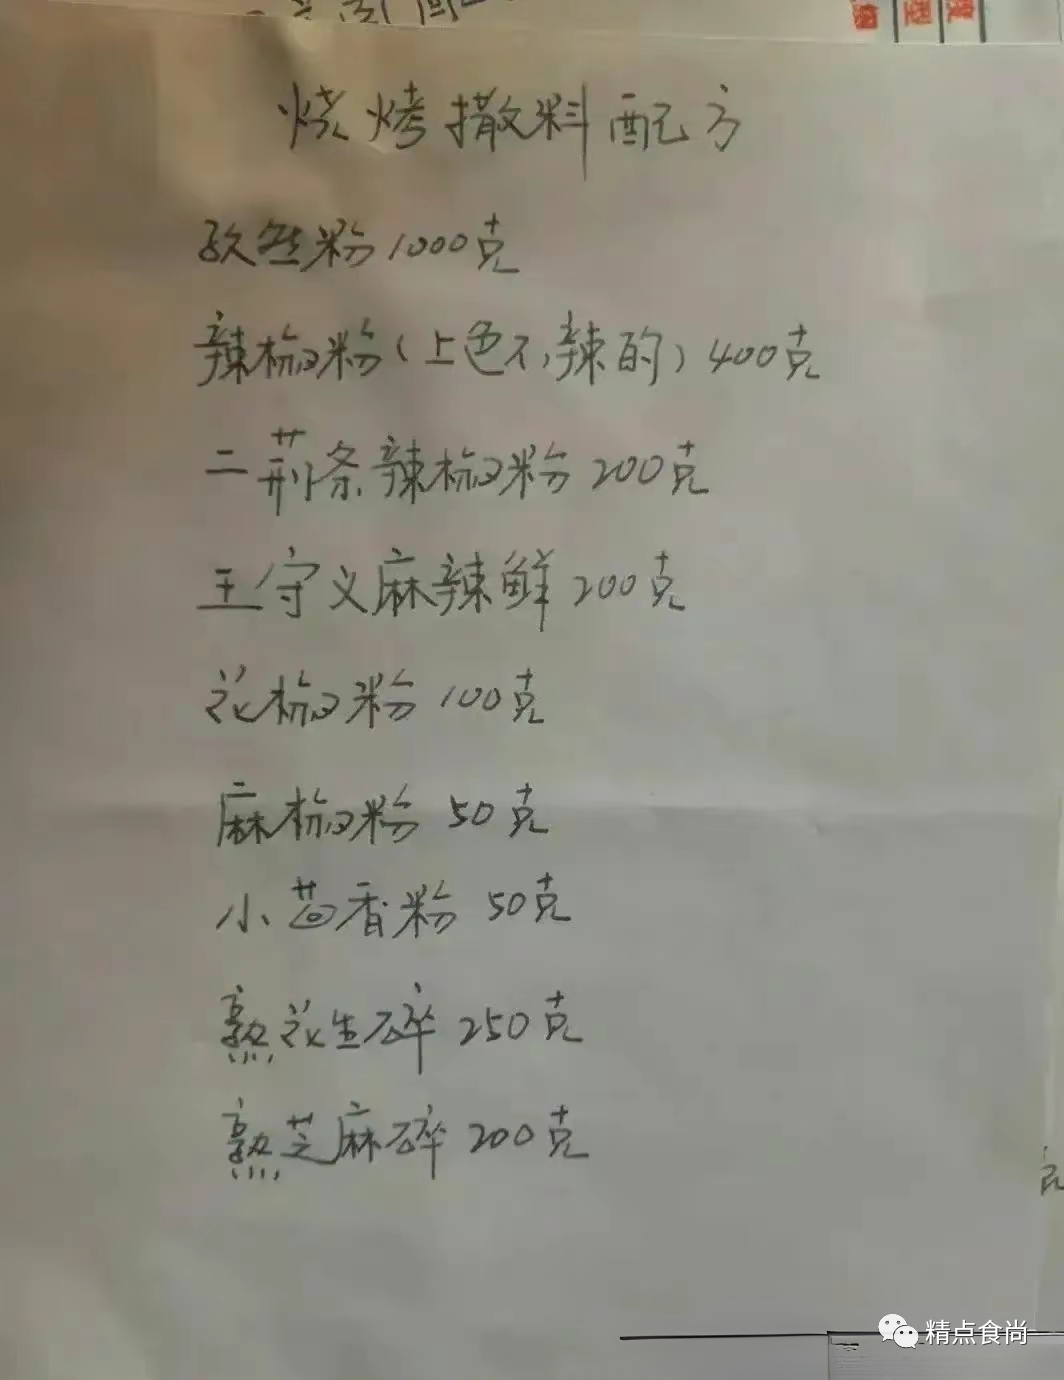 烧烤撒料配方
孜然粉1000克
辣椒粉(上色不辣的)400克
二荆条辣椒粉200克
王守义麻辣鲜200克
花椒粉100克
麻椒粉50克
小茴香粉50克
熟花生碎250克
熟芝麻碎200克
精点食尚